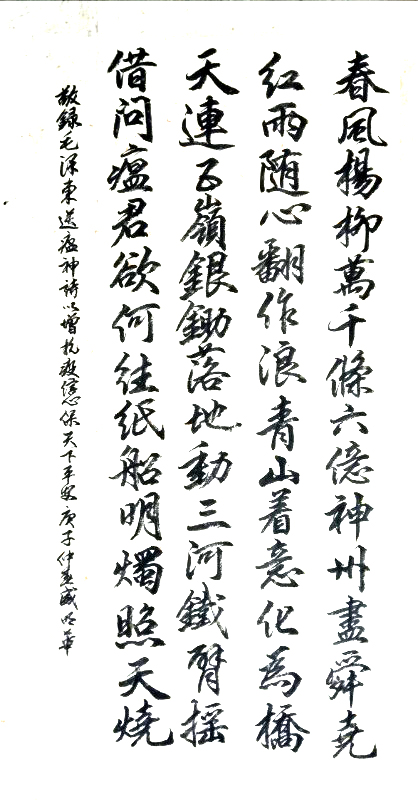 春風楊柳萬千條六億神州盡舜堯
紅雨随心翻作浪青山着意化為橋
天連五嶺銀鋤落地動三河鐵臂摇
借問瘟君欲何往纸船明燭照天燒
敬録毛澤東送瘟神詩以增抗疫信心保天下平安庚子仲春盛明華